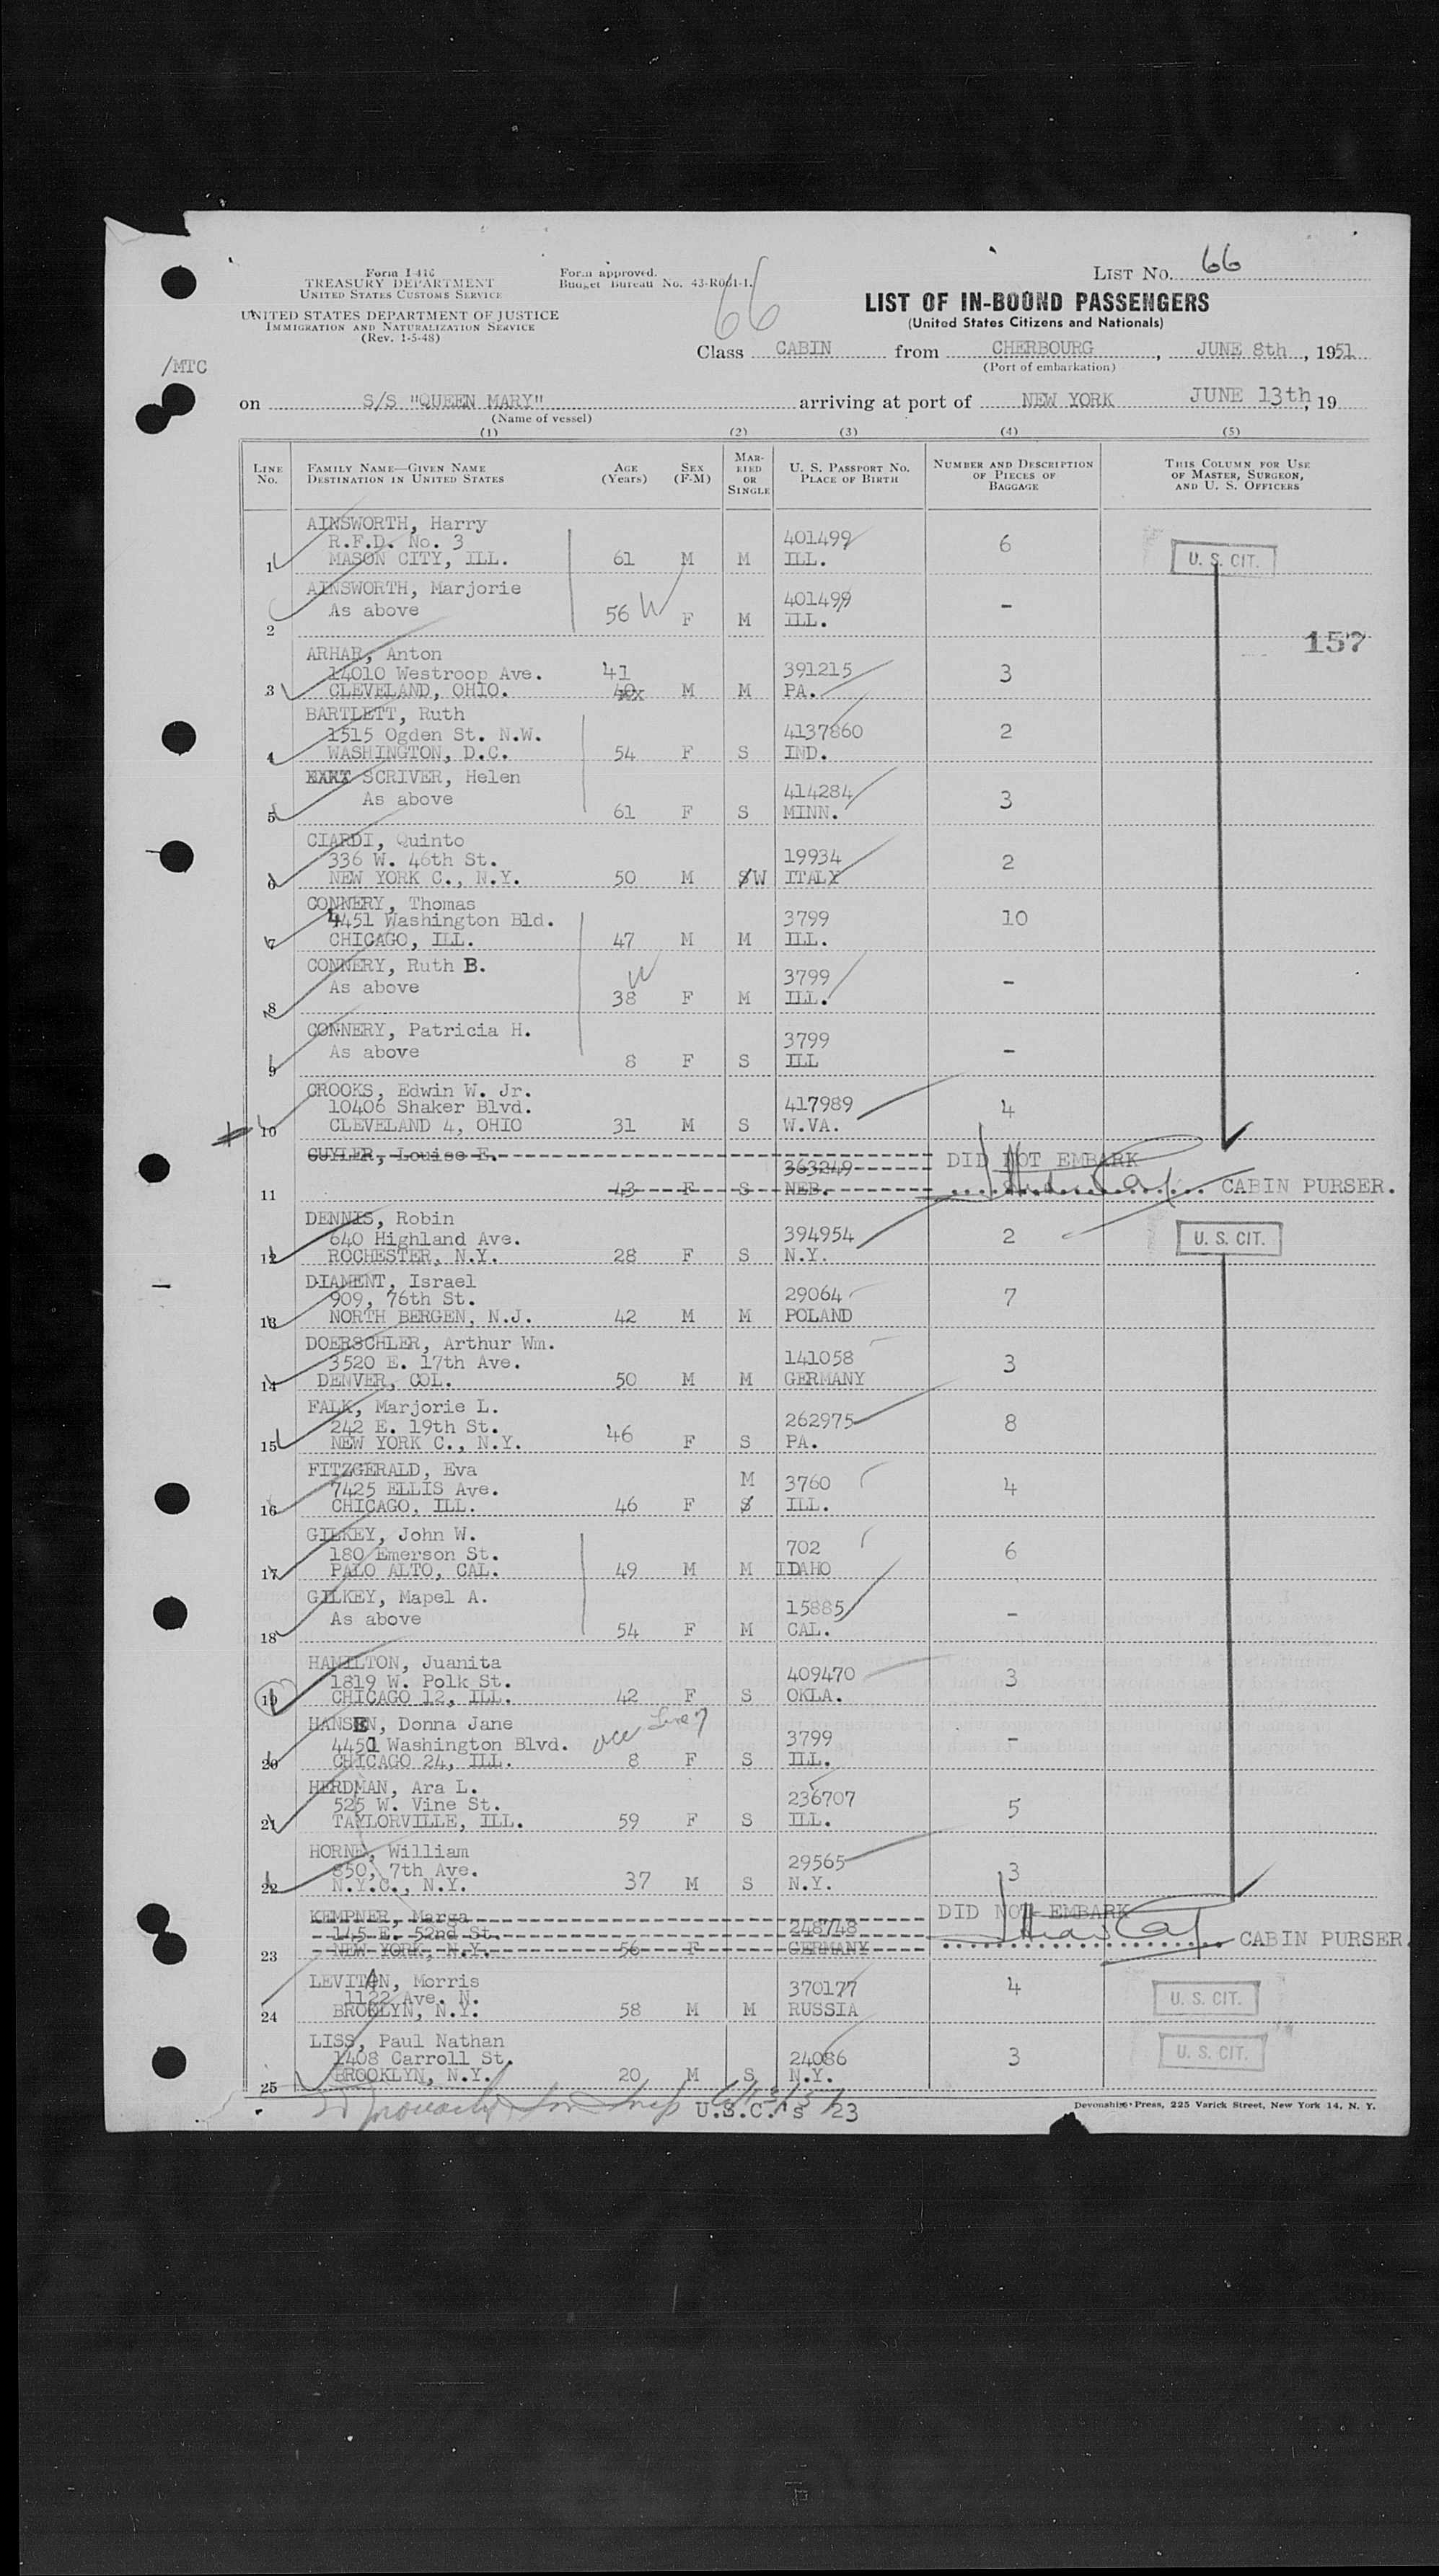 Form I-416
TREASURY DEPARTMENT
UNITED STATES CUSTOMS SERVICE
UNITED STATES DEPARTMENT OF JUSTICE
IMMIGRATION AND NATURALIZATION SERVICE
(Rev. 1-5-48)
Form approved.
Budget Bureau No. 43-R061-1.
66
LIST NO. 66
LIST OF IN-BOUND PASSENGERS
(United States Citizens and Nationals)
/MTC
Class CABIN from CHERBOURG, JUNE 8th, 1951
(Port of embarkation)
on S/S "QUEEN MARY" arriving at port of NEW YORK JUNE 13th, 19
(Name of vessel)
(1) (2) (3) (4) (5)
LINE NO. FAMILY NAME—GIVEN NAME DESTINATION IN UNITED STATES AGE (Years) SEX (F-M) MARRIED OR SINGLE U. S. PASSPORT NO. PLACE OF BIRTH NUMBER AND DESCRIPTION OF PIECES OF BAGGAGE THIS COLUMN FOR USE OF MASTER, SURGEON, AND U. S. OFFICERS
AINSWORTH, Harry
R.F.D. No. 3 401499 6
1 MASON CITY, ILL. 61 M M ILL. U. S. CIT.
AINSWORTH, Marjorie 401499
As above 56 W F M ILL. -
2
157
ARHAR, Anton
14010 Westroop Ave. 41 391215 3
3 CLEVELAND, OHIO. 40xx M M PA.
BARTLETT, Ruth
1515 Ogden St. N.W. 4137860 2
4 WASHINGTON, D.C. 54 F S IND.
SCRIVER, Helen
As above 414284 3
5 61 F S MINN.
CIARDI, Quinto
336 W. 46th St. 19934 2
6 NEW YORK C., N.Y. 50 M S W ITALY
CONNERY, Thomas
4451 Washington Bld. 3799 10
7 CHICAGO, ILL. 47 M M ILL.
CONNERY, Ruth B. W 3799
As above -
8 38 F M ILL.
CONNERY, Patricia H. 3799
As above -
9 8 F S ILL
CROOKS, Edwin W. Jr.
10406 Shaker Blvd. 417989 4
10 CLEVELAND 4, OHIO 31 M S W.VA.
CUYLER, Louise E. 363249 DID NOT EMBARK
11 43 F S NEB. CABIN PURSER.
DENNIS, Robin
640 Highland Ave. 394954 2 U. S. CIT.
12 ROCHESTER, N.Y. 28 F S N.Y.
DIAMENT, Israel
909, 76th St. 29064 7
13 NORTH BERGEN, N.J. 42 M M POLAND
DOERSCHLER, Arthur Wm.
3520 E. 17th Ave. 141058 3
14 DENVER, COL. 50 M M GERMANY
FALK, Marjorie L.
242 E. 19th St. 262975 8
15 NEW YORK C., N.Y. 46 F S PA.
FITZGERALD, Eva M
7425 ELLIS Ave. 3760 4
16 CHICAGO, ILL. 46 F S ILL.
GILKEY, John W.
180 Emerson St. 702 6
17 PALO ALTO, CAL. 49 M M IDAHO
GILKEY, Mapel A. 15885
As above -
18 54 F M CAL.
HAMILTON, Juanita
1819 W. Polk St. 409470 3
19 CHICAGO 12, ILL. 42 F S OKLA.
HANSEN, Donna Jane Line 7
4451 Washington Blvd. acc 3799 -
20 CHICAGO 24, ILL. 8 F S ILL.
HERDMAN, Ara L.
525 W. Vine St. 236707 5
21 TAYLORVILLE, ILL. 59 F S ILL.
HORNE, William
850, 7th Ave. 29565 3
22 N.Y.C., N.Y. 37 M S N.Y.
KEMPNER, Marga DID NOT EMBARK
145 E. 52nd St. 248748
23 NEW YORK, N.Y. 56 F GERMANY CABIN PURSER.
LEVITAN, Morris
1122 Ave. N. 370177 4 U. S. CIT.
24 BROOKLYN, N.Y. 58 M M RUSSIA
LISS, Paul Nathan
1408 Carroll St. 24086 3 U. S. CIT.
25 BROOKLYN, N.Y. 20 M S N.Y.
6/13/51
U.S.C.'s 23
Devonshire Press, 225 Varick Street, New York 14, N. Y.